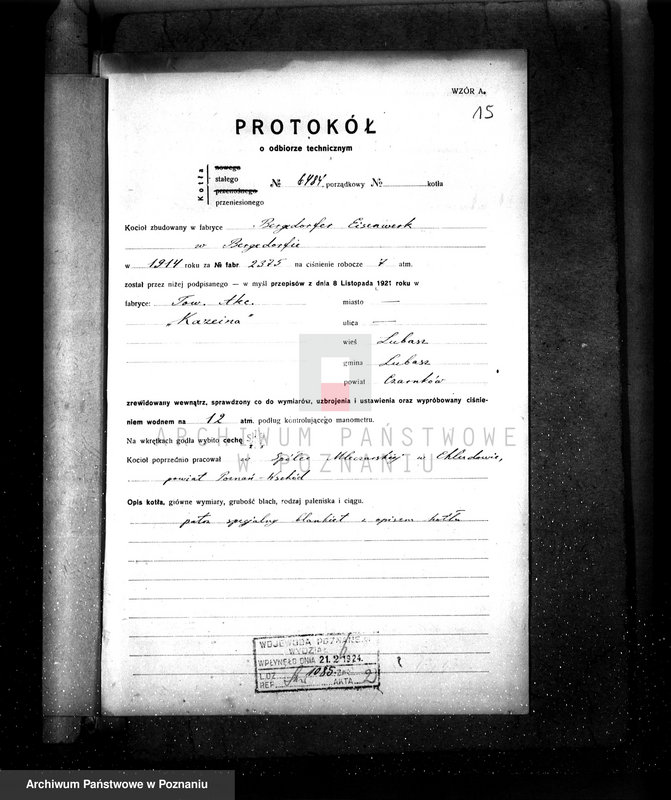 WZÓR A.
15
PROTOKÓŁ
o odbiorze technicznym
Kotła
nowego
stałego
przenośnego
przeniesionego
№ 6484 porządkowy № kotła
Kocioł zbudowany w fabryce Bergedorfer Eisenwerk
w Bergedorfie
w 1914 roku za № fabr. 2375 na ciśnienie robocze 7 atm.
został przez niżej podpisanego — w myśl przepisów z dnia 8 Listopada 1921 roku w
fabryce: Tow. Akc. miasto —
„Kazeina" ulica —
wieś Lubasz
gmina Lubasz
powiat Czarnków
zrewidowany wewnątrz, sprawdzony co do wymiarów, uzbrojenia i ustawienia oraz wypróbowany ciśnie-
niem wodnem na 12 atm. podług kontrolującego manometru.
Na wkrętkach godła wybito cechę
Kocioł poprzednio pracował w Spółce Mleczarskiej w Chludowie,
powiat Poznań-Wschód
Opis kotła, główne wymiary, grubość blach, rodzaj paleniska i ciągu.
patrz specjalny blankiet z opisem kotła
WOJEWODA POZNAŃSKI
WYDZIAŁ
WPŁYNĘŁO DNIA 21.2.1924.
L.DZ. 1085 ZAŁ.
REF. AKTA 2
ARCHIWUM PAŃSTWOWE
W POZNANIU
Archiwum Państwowe w Poznaniu